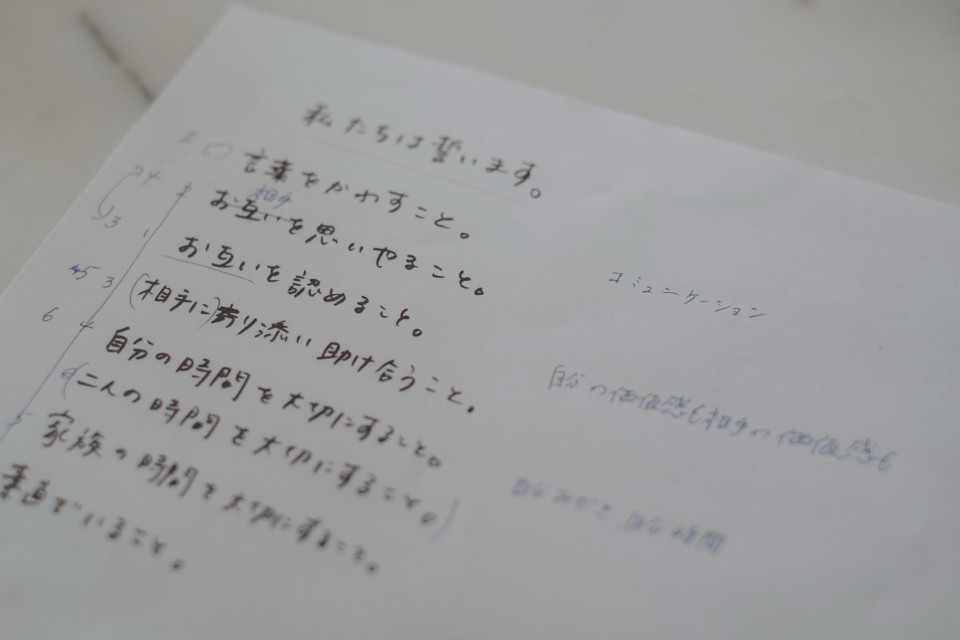 私たちは誓います。
言葉をかわすこと。
相手
お互いを思いやること。
お互いを認めること。
(相手に)寄り添い助け合うこと。
自分の時間を大切にすること。
(二人の時間を大切にすること。)
家族の時間を大切にすること。
素直でいること。
コミュニケーション
自分の価値感も相手の価値感も
自分 自分時間
2
3
1
45 3
6 4
5